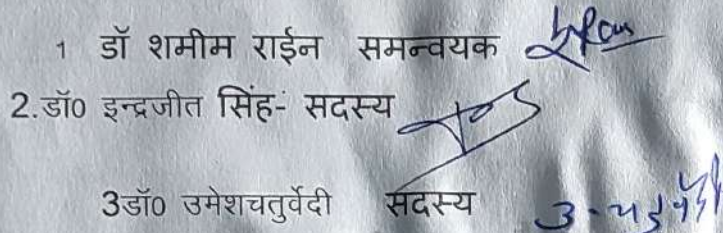 1 डॉ शमीम राईन समन्वयक
2.डॉ0 इन्द्रजीत सिंह-: सदस्य
3डॉ0 उमेशचतुर्वेदी सदस्य